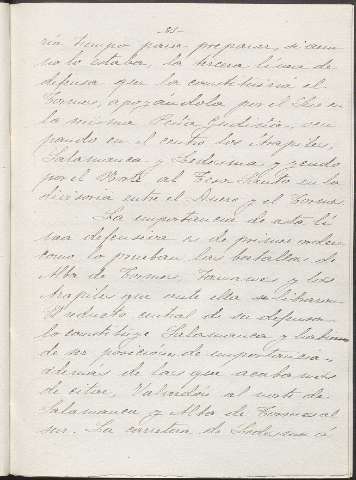 -25-
ría tiempo para preparar, si aun
no lo estaba, la tercera línea de
defensa que la constituiría el
Tormes, apoyándola por el Sur en
la misma Peña Gudiña, ocu
pando en el centro los Arapiles,
Salamanca y Ledesma y yendo
por el Norte al Teso Santo en la
divisoria entre el Duero y el Tormes.
La importancia de esta lí
nea defensiva es de primer orden
como lo prueban las batallas de
Alba de Tormes, Tamames y los
Arapiles que sobre ella se libraron.
Reducto central de su defensa
lo constituye Salamanca y habrán
de ser posiciones de importancia,
además de las que acabamos
de citar, Valverdón al norte de
Salamanca y Alba de Tormes al
sur. La carretera de Ledesma á